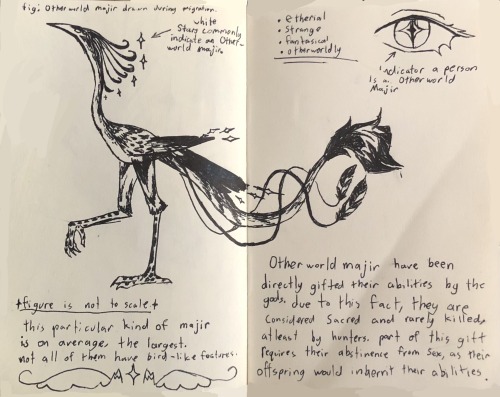 fig: Otherworld majir drawn during migration.
white
Stars commonly
indicate an Other-
world majir
†figure is not to scale†
this particular kind of majir
is on average, the largest.
not all of them have bird-like features.
• etherial
• Strange
• fantasical
• otherworldly
indicator a person
Is a Otherworld
Majir
Otherworld majir have been
directly gifted their abilities by the
gods. due to this fact, they are
Considered Sacred and rarely killed,
atleast by hunters. part of this gift
requires their abstinence from sex, as their
offspring would inherit their abilities.